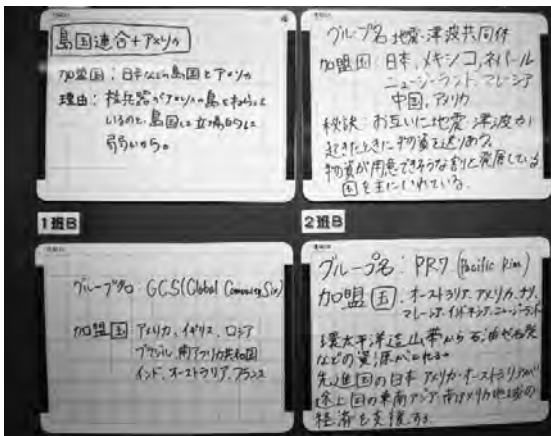 島国連合+アメリカ
加盟国:日本などの島国とアメリカ
理由:核兵器がアメリカの島をねらって
いるのと、島国は立場的に
弱いから。
グループ名 地震・津波共同体
加盟国:日本、メキシコ、ネパール
ニュージーランド、マレーシア
中国、アメリカ
秘訣:お互いに地震・津波が
起きたときに物資を送りあう。
物資が用意できそうな割と発展している
国を主にいれている。
1班B
2班B
グループ名:GCS(Global
加盟国:アメリカ、イギリス、ロシア
ブラジル、南アフリカ共和国
インド、オーストラリア、フランス
グループ名:PR7 (Pacific Rim)
加盟国:オーストラリア、アメリカ、チリ、
マレーシア、インドネシア、ニュージーランド
環太平洋造山帯から石油や石炭
などの資源がとれる。
先進国の日本 アメリカ・オーストラリアが
途上国の東南アジア・南アメリカ地域の
経済を支援する。